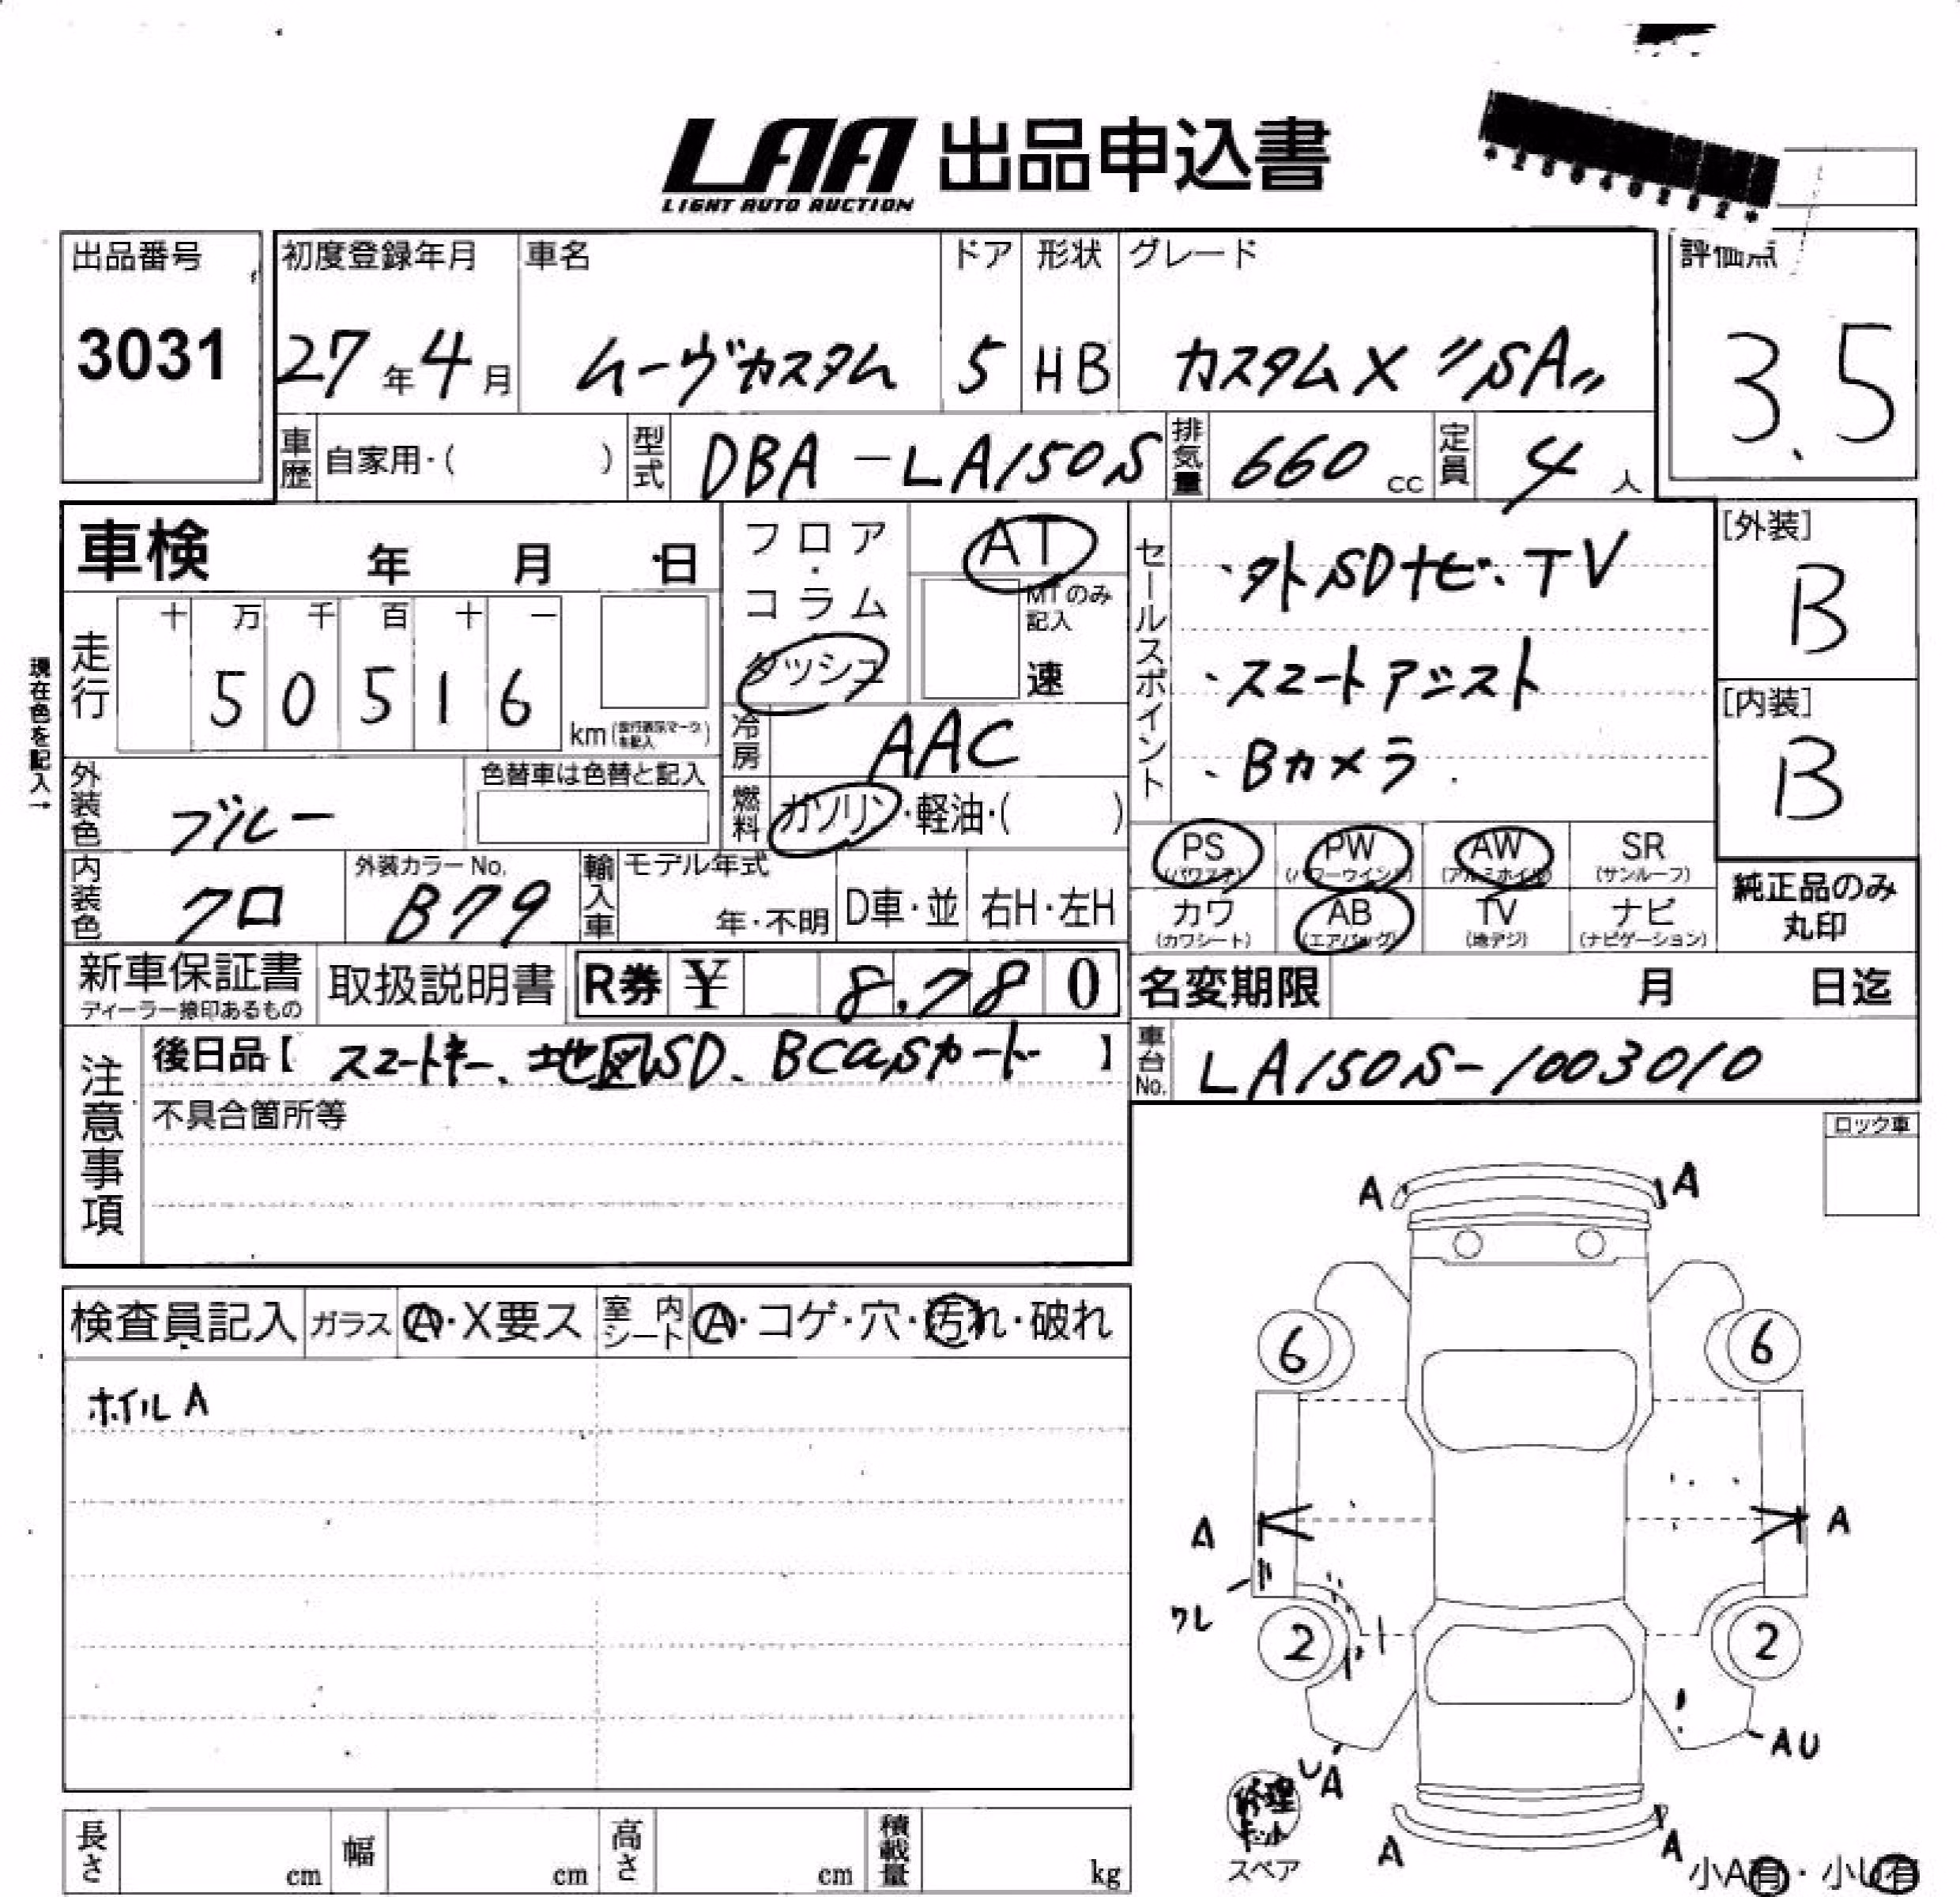 LAA 出品申込書
LIGHT AUTO AUCTION
*25040202*
出品番号 初度登録年月 車名 ドア 形状 グレード 評価点
3031 27年4月 ムーヴカスタム 5 HB カスタムX "SA" 3.5
車歴 自家用・( ) 型式 DBA-LA150S 排気量 660 cc 定員 4 人
車検 年 月 日 フロア・コラム AT セールスポイント ・外SDナビ、TV [外装]
B
現在色を記入→
走行 十 万 千 百 十 一 ダッシュ MTのみ記入 速 ・スマートアシスト [内装]
5 0 5 1 6 km 冷房 AAC ・Bカメラ B
外装色 ブルー 色替車は色替と記入 燃料 ガソリン・軽油・( )
PS PW AW SR
(パワステ) (パワーウインド) (アルミホイル) (サンルーフ)
内装色 クロ 外装カラーNo. B79 輸入車 モデル年式 年・不明 D車・並 右H・左H
カワ AB TV ナビ 純正品のみ
(カワシート) (エアバッグ) (地デジ) (ナビゲーション) 丸印
新車保証書 取扱説明書 R券 ¥ 8,780 名変期限 月 日迄
ディーラー捺印あるもの
注意事項 後日品【 スマートキー、地図SD、BCaSカード 】 車台No. LA150S-1003010
不具合箇所等 ロック車
A A
検査員記入 ガラス A・X要ス 室内シート A・コゲ・穴・汚れ・破れ
6 6
ホイルA
A A
ワレ
2 2
AU
UA
修理キット
スペア
A A
小A有・小U有
長さ cm 幅 cm 高さ cm 積載量 kg